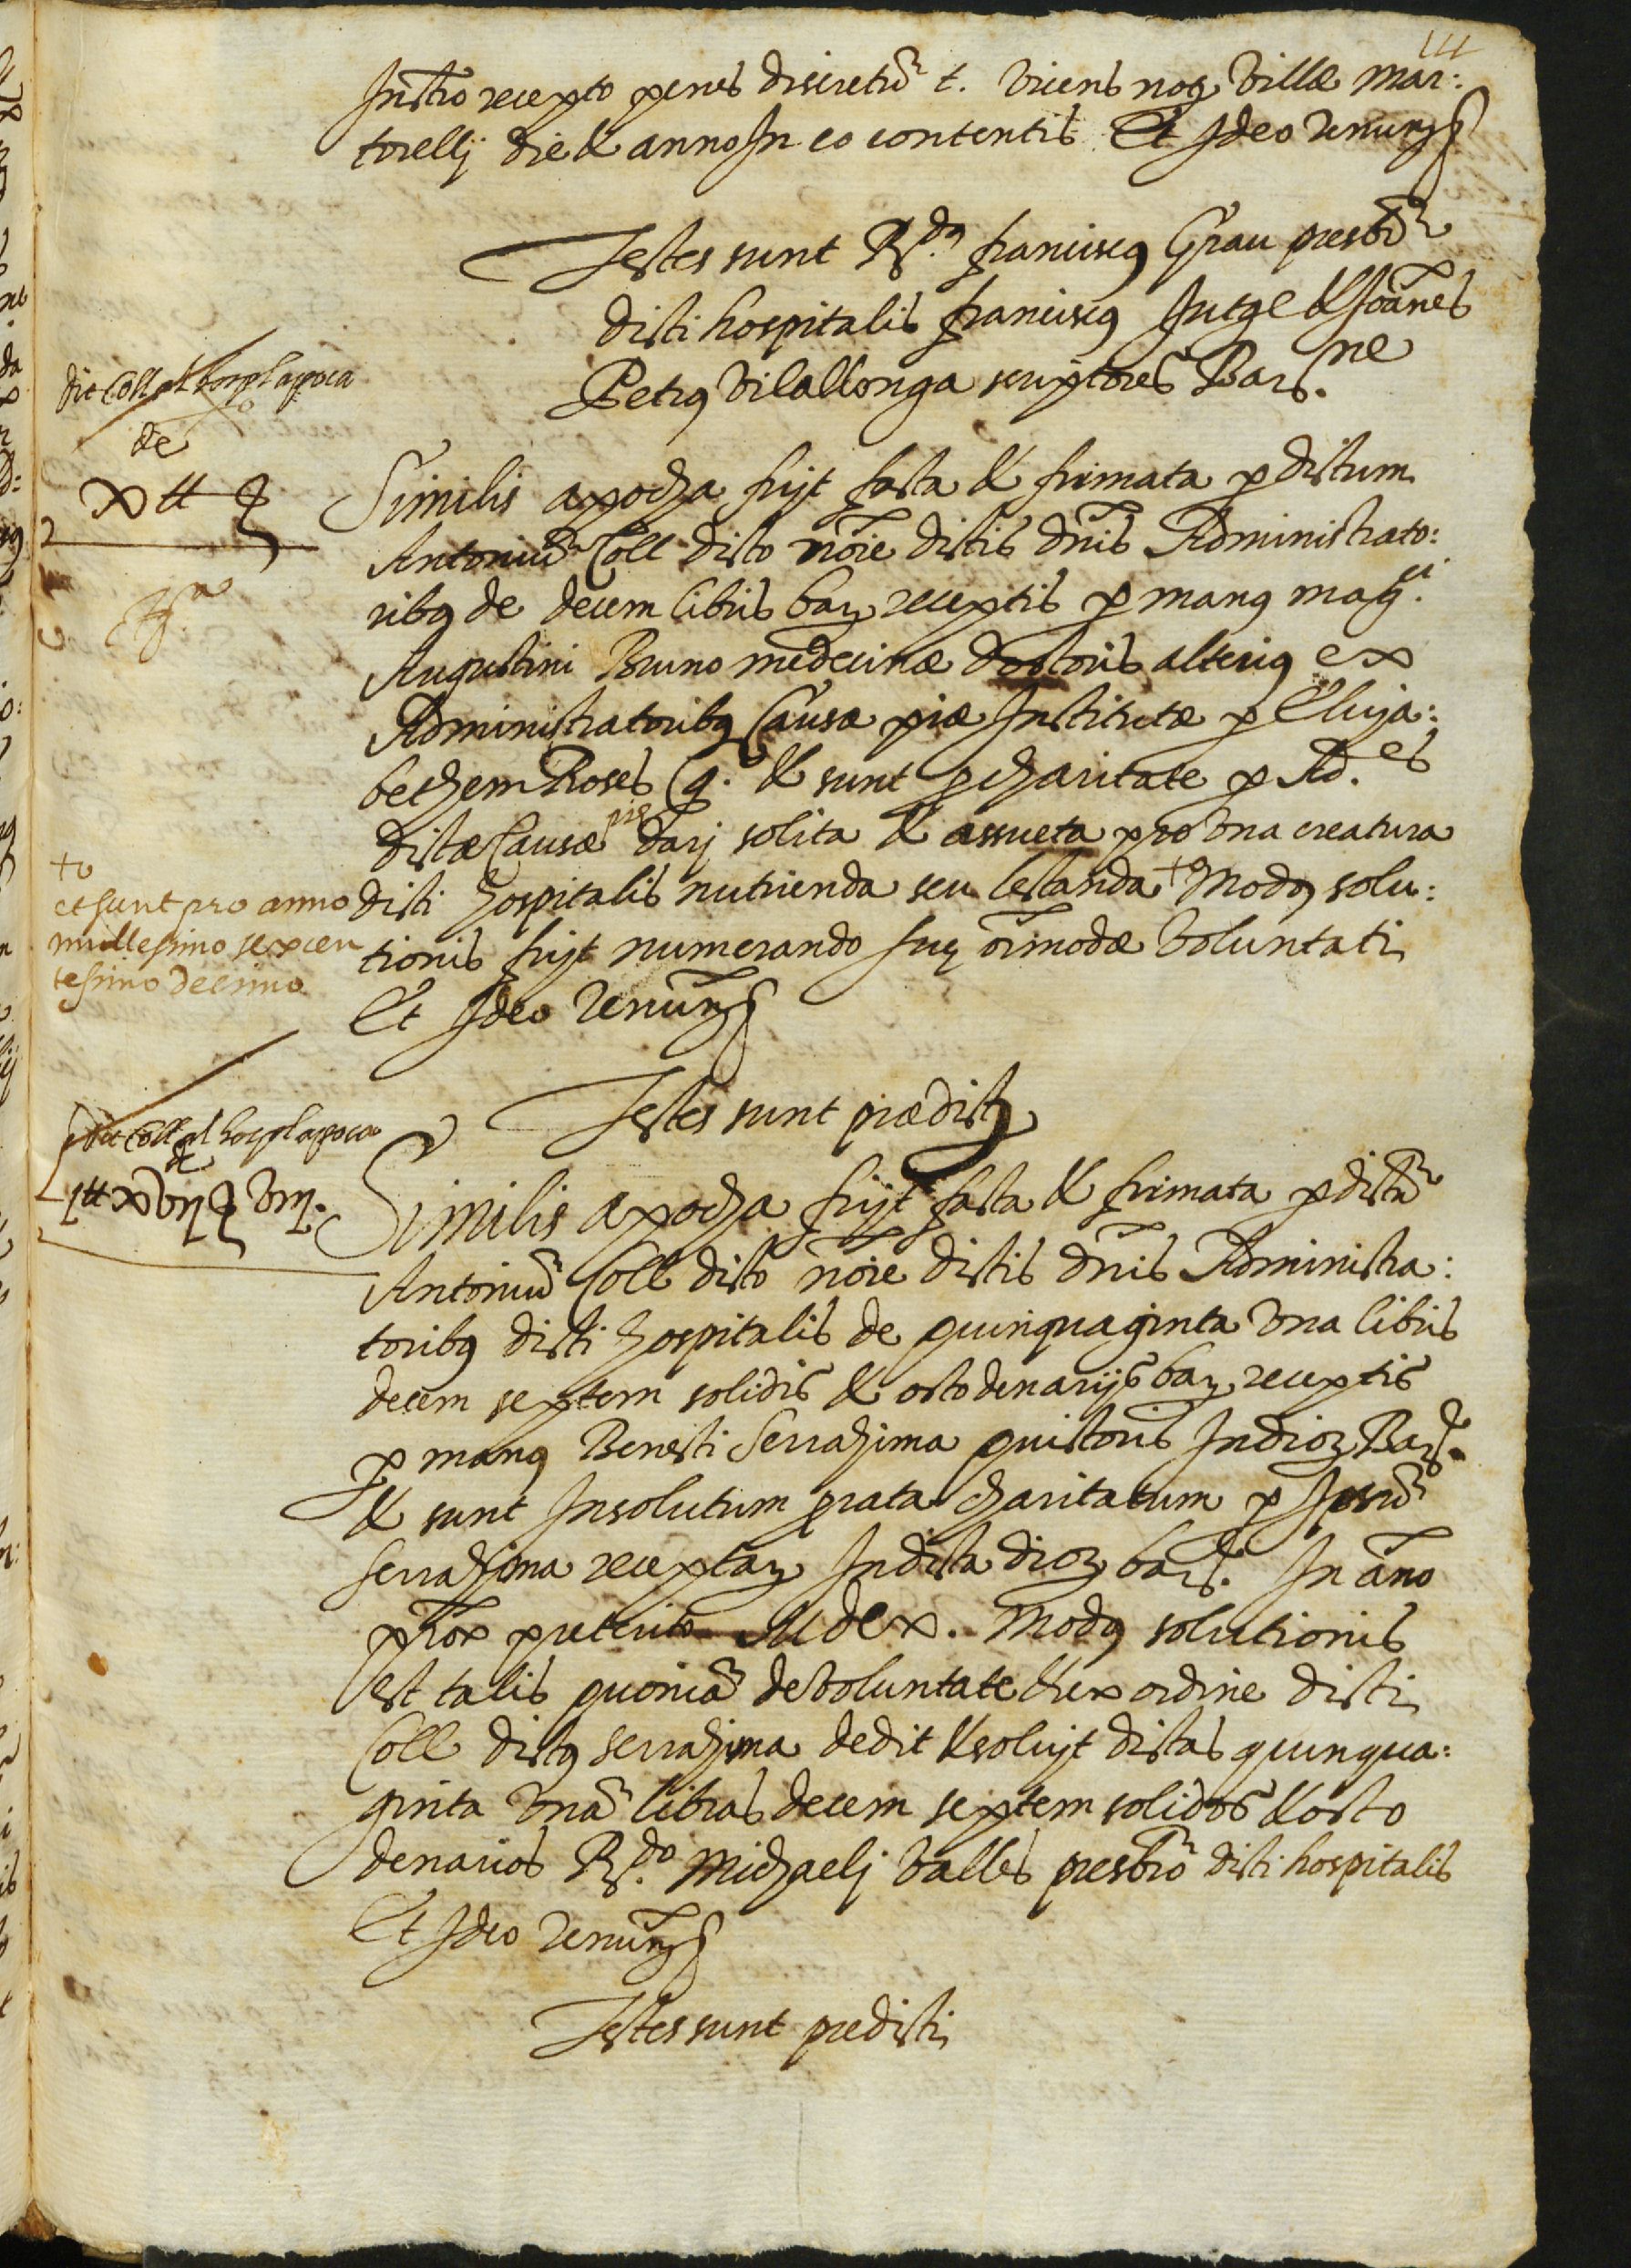 111
Instro recepto penes discretũ t. Vicens noṭ Villæ mar:
torellj die & anno In eo contentis. Et Ideo Renunꝭ
Testes sunt R.dꝰ franciscꝰ Grau presbr̃
dicti hospitalis franciscꝰ Jutge & Joãnes
Petrꝰ Vilallonga scriptores Bar.ne
dit Coll al hospl apoca
de
X tt ꝭ
Similis apocha fuyt facta & firmata p dictum
Antoniũ Coll dicto noĩe dictis dñis Administrato:
ribꝰ de decem libris barꝭ receptis p manꝰ mag.ci
Augustini Bruno medecinæ doctoris alteriꝰ ex
Administratoribꝰ Causæ piæ Institutæ p Elisa:
bethem Roses q. & sunt p charitate p Ad.es
dictæ Causæ pie darj solita & assueta pro Una creatura
dicti hospitalis nutrienda seu lectanda + Modꝰ solu:
tionis fuyt numerando suꝭ oĩmodæ Voluntati
Et Ideo Renunꝭ
+
et sunt pro anno
millessimo sexcen
tessimo decimo
Testes sunt prædictꝭ
dit Coll al hospl apoca
de
Ltt xvij ꝭ viij.
Similis apocha fuyt facta & firmata p dictũ
Antoniũ Coll dicto noĩe dictis dñis Administra:
toribꝰ dicti hospitalis de quinquaginta Una libris
decem septem solidis & octo denarijs barꝭ receptis
p manꝰ Benedicti Serrahima questoris In dioꝭ Barꝭ.
& sunt Insolutum prata charitatum p Ipsũ
Serrahima receptarꝭ In dicta dioꝭ barꝭ. In ãno
prõx preterito MDCX. Modꝰ solutionis
est talis quoniã de Voluntate & ex ordine dicti
Coll dictꝰ serrahima dedit & soluyt dictas quinqua:
ginta Unã libras decem septem solidos & octo
denarios R.do Michaelj Valles presbr̃o dicti hospitalis
Et Ideo Renunꝭ
Testes sunt predicti